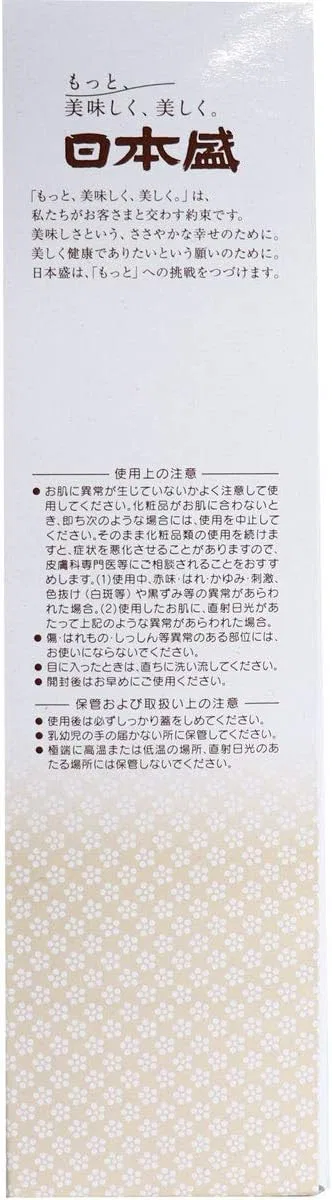 もっと、
美味しく、美しく。
日本盛
「もっと、美味しく、美しく。」は、
私たちがお客さまと交わす約束です。
美味しさという、ささやかな幸せのために。
美しく健康でありたいという願いのために。
日本盛は、「もっと」への挑戦をつづけます。
使用上の注意
● お肌に異常が生じていないかよく注意して使
用してください。化粧品がお肌に合わないと
き、即ち次のような場合には、使用を中止して
ください。そのまま化粧品類の使用を続けま
すと、症状を悪化させることがありますので、
皮膚科専門医等にご相談されることをおすす
めします。(1)使用中、赤味・はれ・かゆみ・刺激、
色抜け(白斑等)や黒ずみ等の異常があらわ
れた場合。(2)使用したお肌に、直射日光があ
たって上記のような異常があらわれた場合。
● 傷・はれもの・しっしん等異常のある部位には、
お使いにならないでください。
● 目に入ったときは、直ちに洗い流してください。
● 開封後はお早めにご使用ください。
保管および取扱い上の注意
● 使用後は必ずしっかり蓋をしめてください。
● 乳幼児の手の届かない所に保管してください。
● 極端に高温または低温の場所、直射日光のあ
たる場所には保管しないでください。